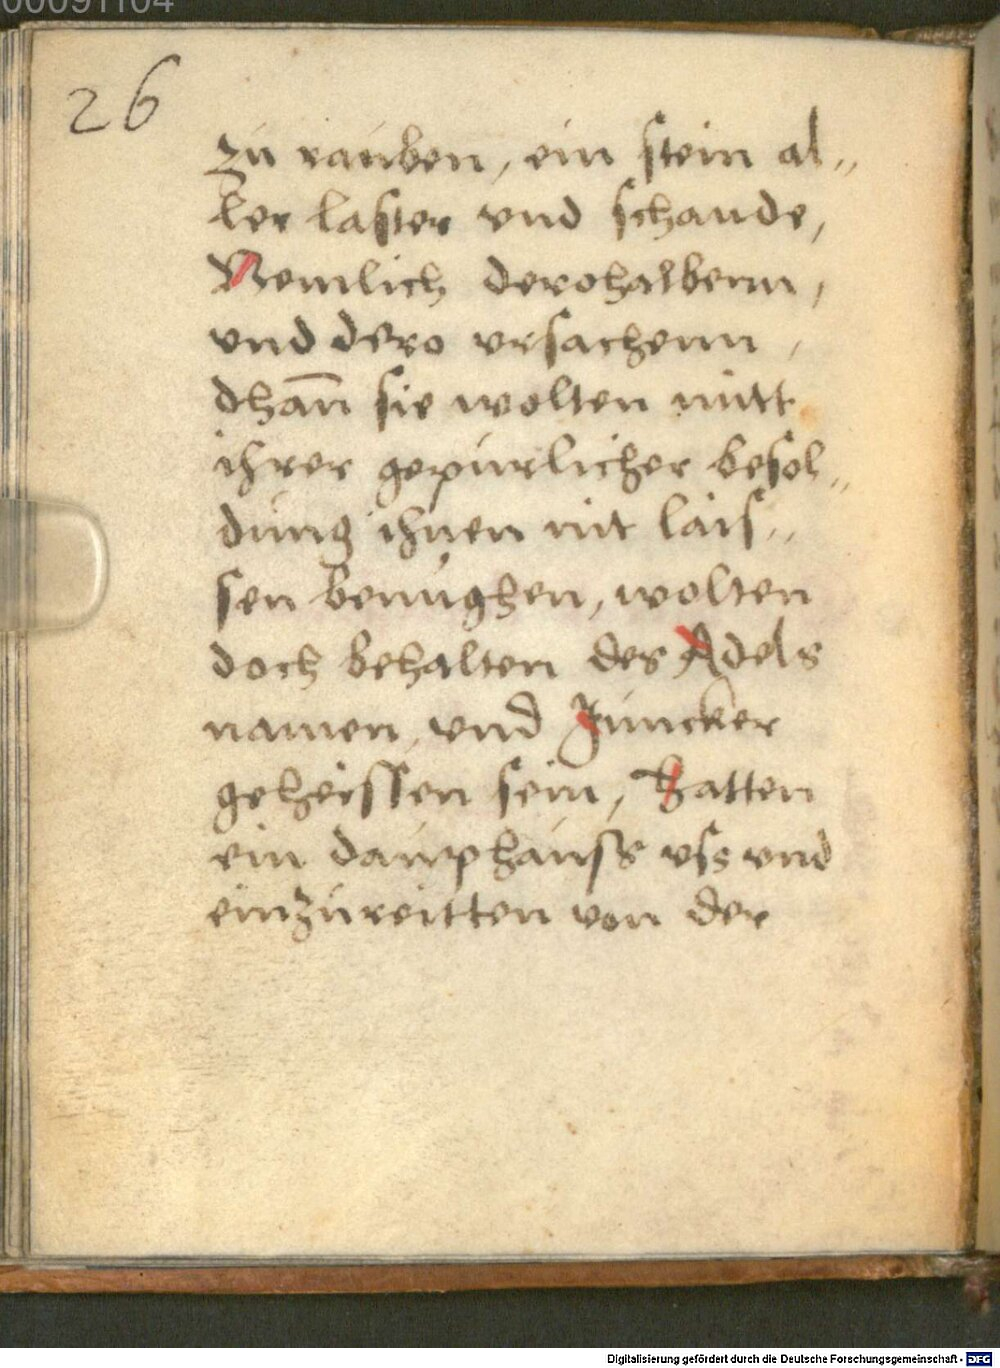 00091104
26
zu rauben, ein stein al„
ler laster vnd schande,
Nemlich derohalbenn,
vnd dero vrsachenn,
dhan̄ sie wolten mitt
ihrer gepurlicher besol„
dung ihnen nit lais„
sen benughen, wolten
doch behalten des Adels
namen, vnd Juncker
geheissen sein, Hatten
ein dauphauss vss vnd
einzureitten von der
Digitalisierung gefördert durch die Deutsche Forschungsgemeinschaft - DFG